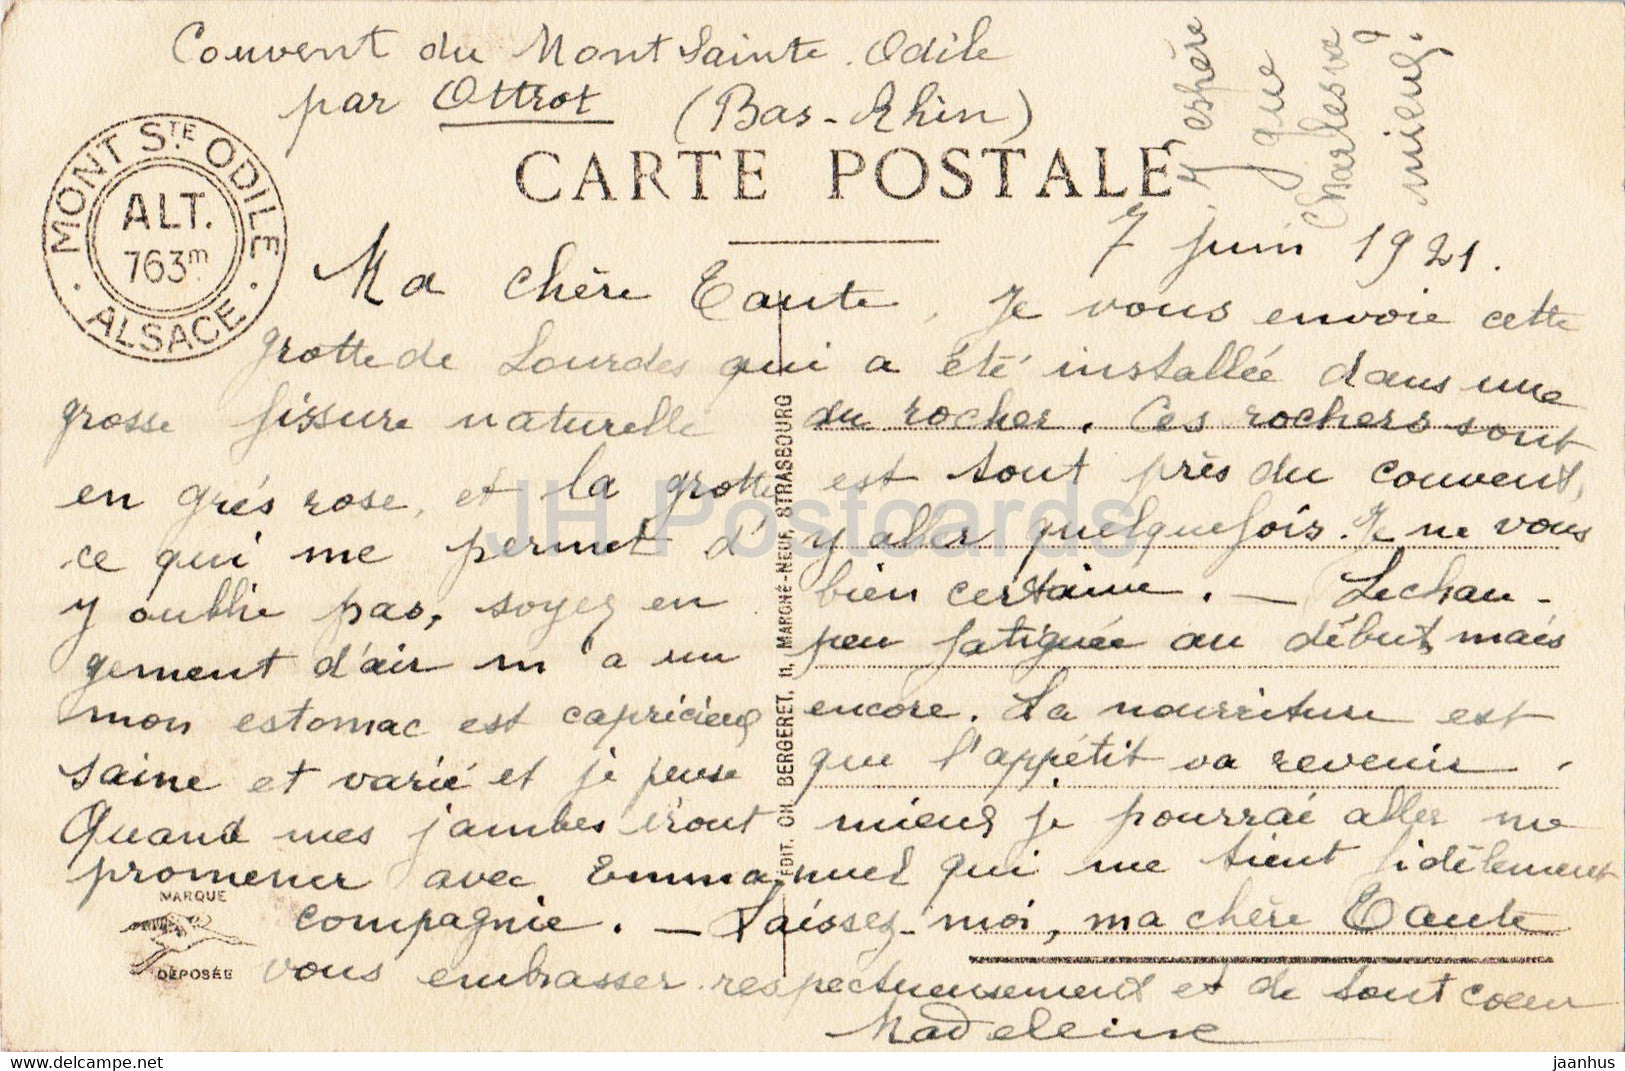 Couvent du Mont Sainte. Odile
par Ottrot (Bas-Rhin)
J'espère
que
Charles va
mieux.
MONT STE ODILE
ALT.
763m
ALSACE
CARTE POSTALE
7 juin 1921.
Ma chère Tante, Je vous envoie cette
grotte de Lourdes qui a été installée dans une
grosse fissure naturelle du rocher. Ces rochers sont
en grés rose, et la grotte est tout près du couvent,
ce qui me permet d'y aller quelquefois. Je ne vous
y oublie pas, soyez en bien certaine. — Le chan-
gement d'air m'a un peu fatiguée au début mais
mon estomac est capricieux encore. La nourriture est
saine et varié et je pense que l'appétit va revenir.
Quand mes jambes iront mieux je pourrai aller me
promener avec Emmanuel qui me tient fidèlement
compagnie. — Laissez-moi, ma chère Tante
vous embrasser respectueusement et de tout coeur
Madeleine
MARQUE
DÉPOSÉE
EDIT. CH. BERGERET, 11, MARCHÉ-NEUF, STRASBOURG
JH Postcards
www.delcampe.net
jaanhus